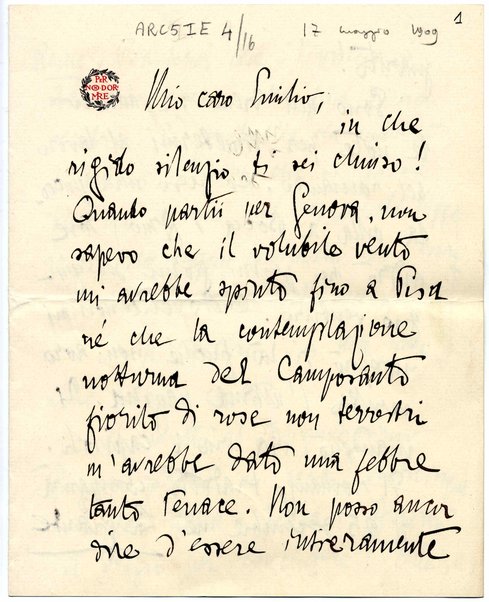 ARC5IE 4/16 17 maggio 1909 1
PER NON DORMIRE
Mio caro Emilio,
in che
rigido silenzio ti sei chiuso!
Quando partii per Genova, non
sapevo che il volubile vento
mi avrebbe spinto fino a Pisa
né che la contemplazione
notturna del Camposanto
fiorito di rose non terrestri
m'avrebbe dato una febbre
tanto tenace. Non posso ancor
dire d'essere intieramente